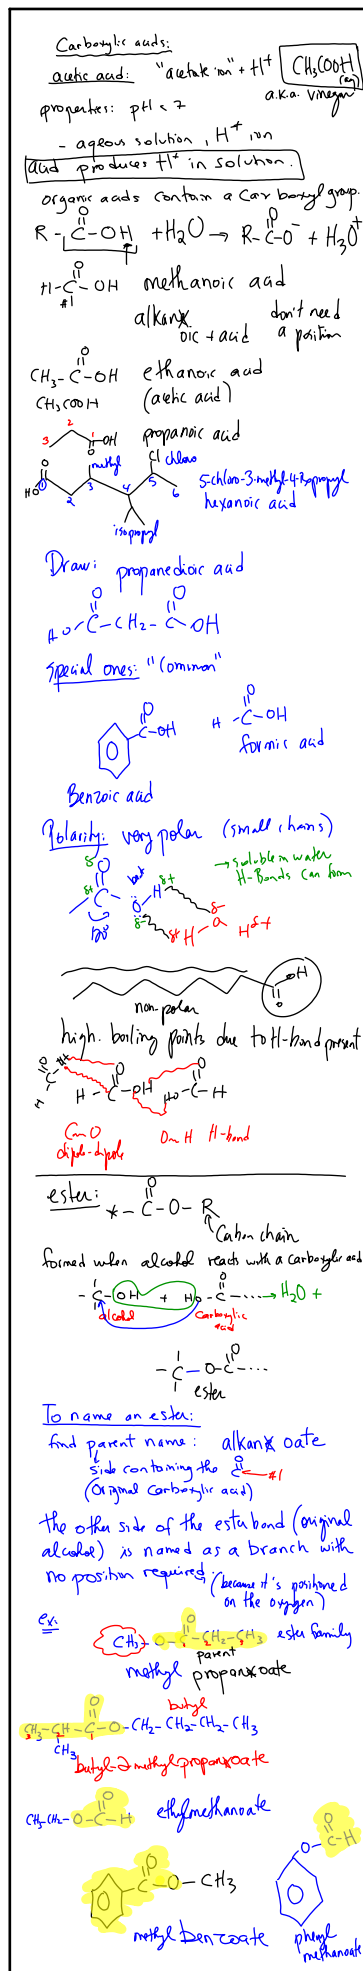 Carboxylic acids:
acetic acid: "acetate ion" + H⁺ CH₃COOH (aq)
a.k.a. vinegar
properties: pH < 7
- aqeous solution, H⁺ ion
acid produces H⁺ in solution.
organic acids contain a carboxyl group.
O
R - C - OH + H₂O → R - C - O⁻ + H₃O⁺
O
H - C - OH methanoic acid
#1
alkane don't need
oic + acid a position
O
CH₃ - C - OH ethanoic acid
CH₃COOH (acetic acid)
3 2 1 O OH propanoic acid
O HO 1 2 3 4 5 6 methyl Cl chloro
5-chloro-3-methyl-4-isopropyl
hexanoic acid
isopropyl
Draw: propanedioic acid
O O
HO - C - CH₂ - C - OH
special ones: "common"
O O
C - OH H - C - OH
formic acid
Benzoic acid
Polarity: very polar (small chains)
δ- O δ+ → soluble in water
H-Bonds can form
δ+ C O H δ-
120° δ- δ+ H - O H δ+
O OH
non-polar
high boiling points due to H-bond present
O O
H - C - OH HO - C - H
C=O O-H H-bond
dipole-dipole
ester: * - C - O - R
Carbon chain
formed when alcohol reacts with a carboxylic acid
- C - OH + HO - C - .... → H₂O +
alcohol carboxylic
acid
- C - O - C - ...
ester
To name an ester:
find parent name: alkane oate
side containing the C #1
(Original carboxylic acid)
the other side of the ester bond (original
alcohol) is named as a branch with
no position required. (because it's positioned
on the oxygen)
ex:
CH₃ - O - C - CH₂ - CH₃ ester family
1 2 3
parent
methyl propanoate
butyl
CH₃ - CH - C - O - CH₂ - CH₂ - CH₂ - CH₃
3 2 1
CH₃
butyl-2-methylpropanoate
CH₃-CH₂ - O - C - H ethylmethanoate
O
C - O - CH₃
O
O - C - H
methyl benzoate
phenyl
methanoate